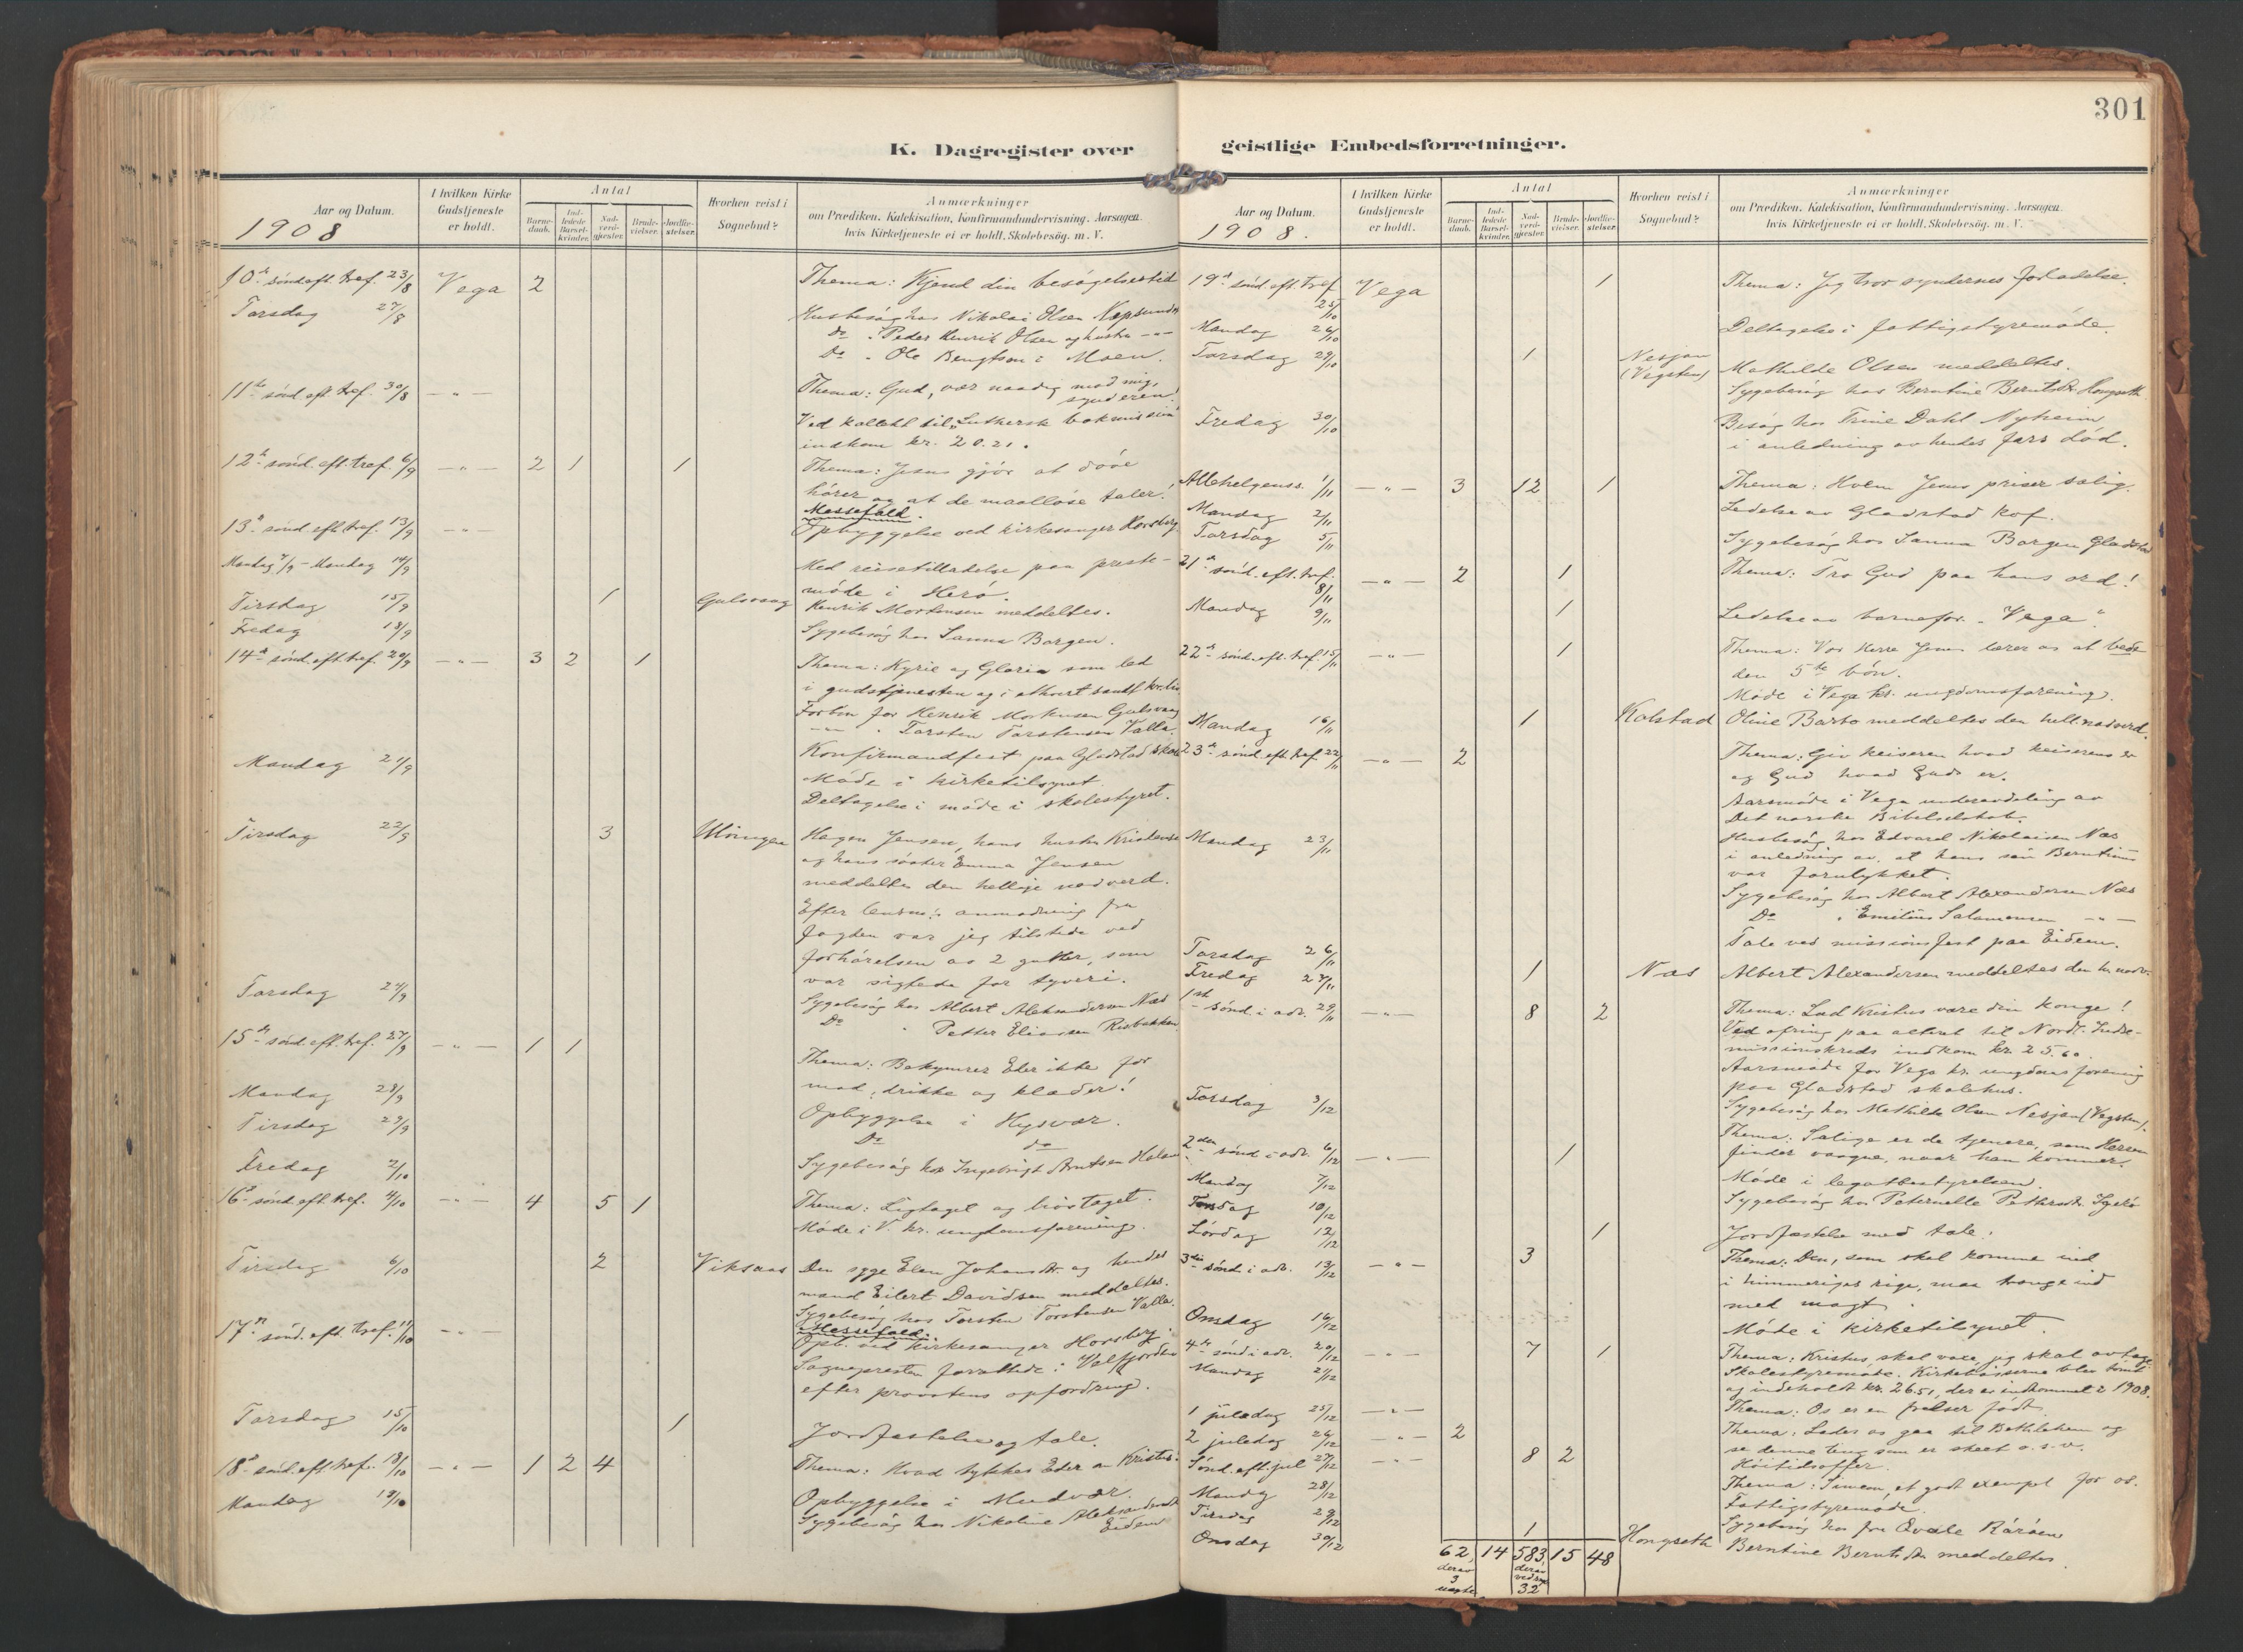 301
K. Dagregister over
geistlige Embedsforretninger.
Aar og Datum.
1908
I hvilken Kirke
Gudstjeneste
er holdt.
Antal
Barne-
daab.
Ind-
ledede
Barsel-
kvinder.
Nad-
verd-
gjester.
Brude-
vielser.
Jordfæ-
stelser.
Hvorhen reist i
Sognebud?
Anmærkninger
om Prædiken, Katekisation, Konfirmandundervisning. Aarsagen.
hvis Kirketjeneste ei er holdt, Skolebesøg. m. V.
10de sönd eft. tref. 23/8 Vega 2 Thema: Kjend din besögelsestid
Torsdag 27/8 Husbesög hos Nikolai Olsen Næpsundet
Do . Peder Henrik Olsen og hustru -"-
Do . Ole Bengtson i Moen.
11te sönd eft. tref. 30/8 -"- Thema: Gud, vær naadig mod mig,
synderen!
Ved kollekt til "Luthersk bokmission"
indkom kr. 20.21.
12te sönd. eft. tref. 6/9 -"- 2 1 1 Thema: Jesus gjör at döve
hörer og at de maallöse taler!
13de sönd eft. tref. 13/9 -"- Messefald.
Opbyggelse ved kirkesanger Horsberg.
Mandag 7/9 - Mandag 14/9 Med reisetilladelse paa preste-
möde i Herö.
Tirsdag 15/9 1 Gulsvaag Henrik Mortensen meddeltes.
Fredag 18/9 Sygebesög hos Sanna Borgen.
14de sönd. eft. tref. 20/9 -"- 3 2 1 Thema: Kyrie og Gloria som led
i gudstjenesten og i ethvert sandt kr. liv
Forbön for Henrik Mortensen Gulsvaag
-"- . Torsten Torstensen Valla.
Mandag 21/9 Konfirmandfest paa Gladstad skole
Möde i kirketilsynet.
Deltagelse i möde i skolestyret.
Tirsdag 22/9 3 Ulöingen Hagen Jensen, hans hustru Kristense
og hans söster Emma Jensen
meddeltes den hellige nadverd.
Efter lensm.s anmodning fra
fogden var jeg tilstede ved
forhörelsen av 2 gutter, som
var sigtede for tyveri.
Torsdag 24/9 Sygebesög hos Albert Aleksandersen Næs
Do . Petter Eliassen Risbakken
15de sönd. eft. tref. 27/9 -"- 1 1 Thema: Bekymrer Eder ikke for
mad, drikke og klæder!
Mandag 28/9 Opbyggelse i Hysvær.
Tirsdag 29/9 Do do
Fredag 2/10 Sygebesög hos Ingebrigt Arntsen Holand
16de sönd. eft. tref. 4/10 -"- 4 5 1 Thema: Ligtoget og livstoget.
Möde i V. kr. ungdomsforening.
Tirsdag 6/10 2 Viksaas Den syge Elen Johansdt. og hendes
mand Eilert Davidsen meddeltes.
Sygebesög hos Torsten Torstensen Valla.
17de sönd. eft. tref. 11/10 -"- Messefald.
Opb. ved kirkesanger Horsberg.
Sognepresten forrettede i Velfjorden
efter provstens opfordring.
Torsdag 15/10 1 Jordfæstelse og tale.
18de sönd. eft. tref. 18/10 -"- 1 2 4 Thema: Hvad tykkes Eder om Kristus?
Mandag 19/10 Opbyggelse i Mudvær.
Sygebesög hos Nikoline Aleksandersdt.
Eidem
Aar og Datum.
1908.
I hvilken Kirke
Gudstjeneste
er holdt.
Antal
Barne-
daab.
Ind-
ledede
Barsel-
kvinder.
Nad-
verd-
gjester.
Brude-
vielser.
Jordfæ-
stelser.
Hvorhen reist i
Sognebud?
Anmærkninger
om Prædiken, Katekisation, Konfirmandundervisning. Aarsagen.
hvis Kirketjeneste ei er holdt, Skolebesøg. m. V.
19de sönd. eft. tref 25/10 Vega 1 Thema: Jeg tror syndernes forladelse.
Mandag 26/10 Deltagelse i fattigstyremöde.
Torsdag 29/10 1 Nesjan (Vegsten) Mathilde Olsen meddeltes.
Sygebesög hos Berntine Berntsdtr. Hongseth.
Fredag 30/10 Besög hos Trine Dahl Nyheim
i anledning av hendes fars död.
Allehelgenss. 1/11 -"- 3 12 1 Thema: Hvem Jesus priser salig.
Mandag 2/11 Ledelse av Gladstad kof.
Torsdag 5/11 Sygebesög hos Sanna Borgen Gladstad
21de sönd. eft. tref. 8/11 -"- 2 1 Thema: Tro Gud paa hans ord!
Mandag 9/11 1 Ledelse av barnefor. "Vega".
22de sönd. eft. tref. 15/11 -"- 1 Thema: Vor Herre Jesus lærer os at bede
den 5te bön.
Möde i Vega kr. ungdomsforening.
Mandag 16/11 1 Kolstad Oline Barbo meddeltes den hell. nadverd.
23de sönd. eft. tref 22/11 -"- 2 Thema: Giv keiseren hvad keiserens er
og Gud hvad Guds er.
Aarsmöde i Vega underavdeling av
Det norske Bibelselskab.
Mandag 23/11 Husbesög hos Edvard Nikolaisen Næs
i anledning av, at hans sön Berntinus
var forulykket.
Sygebesög hos Albert Alexandersen Næs
Do . Emilius Salamonsen -"-
Torsdag 26/11 Tale ved missionsfest paa Eidem.
Fredag 27/11 1 Næs Albert Alexandersen meddeltes den h. nadv.
1ste sönd. i adv. 29/11 -"- 8 2 Thema: Lad Kristus være din konge!
Ved ofring paa alteret til Nordl. Indre-
missionskreds indkom kr. 25.60.
Aarsmöde for Vega kr. ungdomsforening
paa Gladstad skolehus.
Torsdag 3/12 Sygebesög hos Mathilde Olsen Nesjan (Vegsten).
2den sönd i adv. 6/12 -"- 1 Thema: Salige er de tjenere, som Herren
finder vaagne, naar han kommer.
Mandag 7/12 Möde i legatbestyrelsen.
Torsdag 10/12 Sygebesög hos Peternelle Pettersdtr.
Lördag 12/12 1 Jordfæstelse med tale.
3die sönd. i adv. 13/12 -"- 3 Thema: Den, som skal komme ind
i himmeriges rige, maa trænge ind
med magt.
Onsdag 16/12 Möde i kirketilsynet.
4de sönd i adv. 20/12 -"- 7 1 Thema: Kristus skal vokse, jeg skal avtage.
Mandag 21/12 Skolestyremöde. Kirkebösserne blev tömt
og indeholdt kr. 26.51, der er indkommet i 1908.
1 juledag 25/12 -"- Thema: Os er en frelser födt.
2 juledag 26/12 -"- 2 Thema: Lader os gaa til Bethlehem og
se denne ting som er skeet o.s.v.
Höitidsoffer.
Sönd. eft. jul 27/12 -"- 8 2 Thema: Simeon, et godt exempel for os.
Mandag 28/12 Fattigstyremöde.
Tirsdag 29/12 Sygebesög hos fru Qvale Röröen
Onsdag 30/12 1 Hongseth Berntine Berntsdtr. meddeltes.
62, 14 583, 15 48
derav
3
uægte
derav
ved syge
32